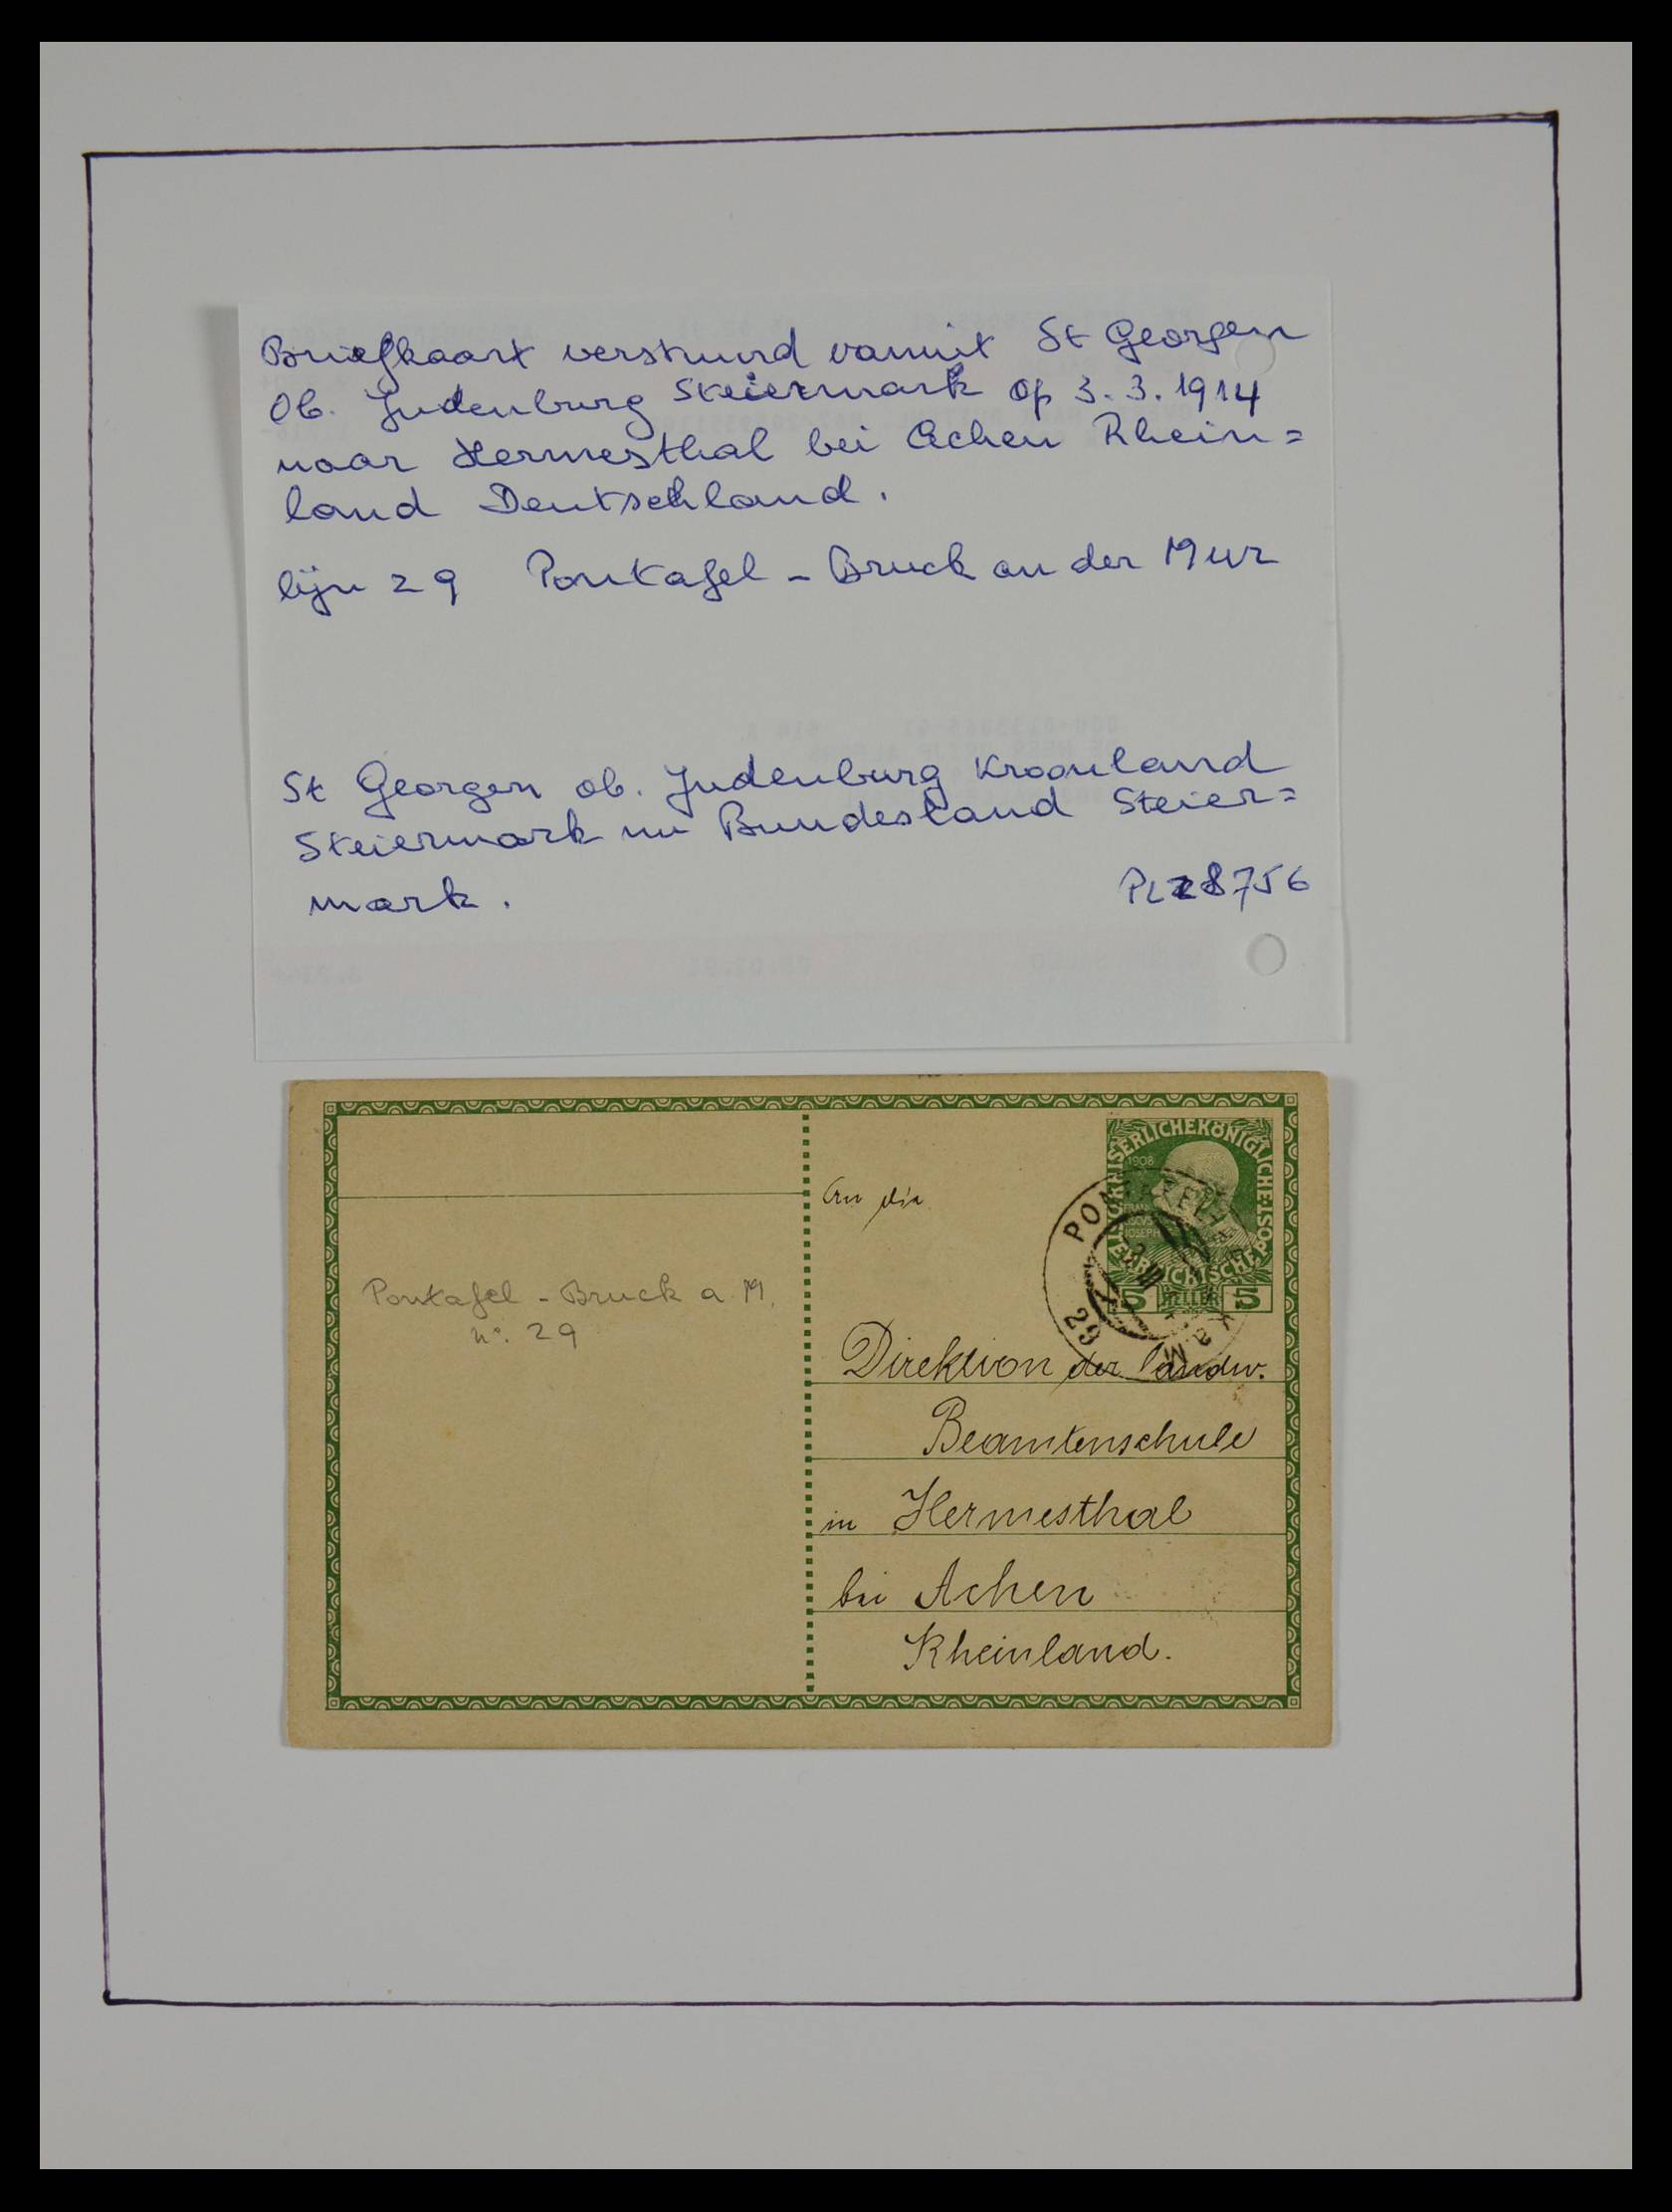 Briefkaart verstuurd vanuit St Georgen
Ob. Judenburg Steiermark op 3.3.1914
naar Hermesthal bei Achen Rhein=
land Deutschland.
lijn 29 Pontafel - Bruck an der Mur
St Georgen ob. Judenburg Kroonland
Steiermark nu Bundesland Steier=
mark.
PLZ 8756
KAISERLICHEKÖNIGLICHE·POST·
ÖSTERREICHISCHE
1908
FRAN
JOSEPH
5 HELLER 5
29
An die
Pontafel - Bruck a M.
n°. 29
Direktion der landw.
Beamtenschule
in Hermesthal
bei Achen
Rheinland.